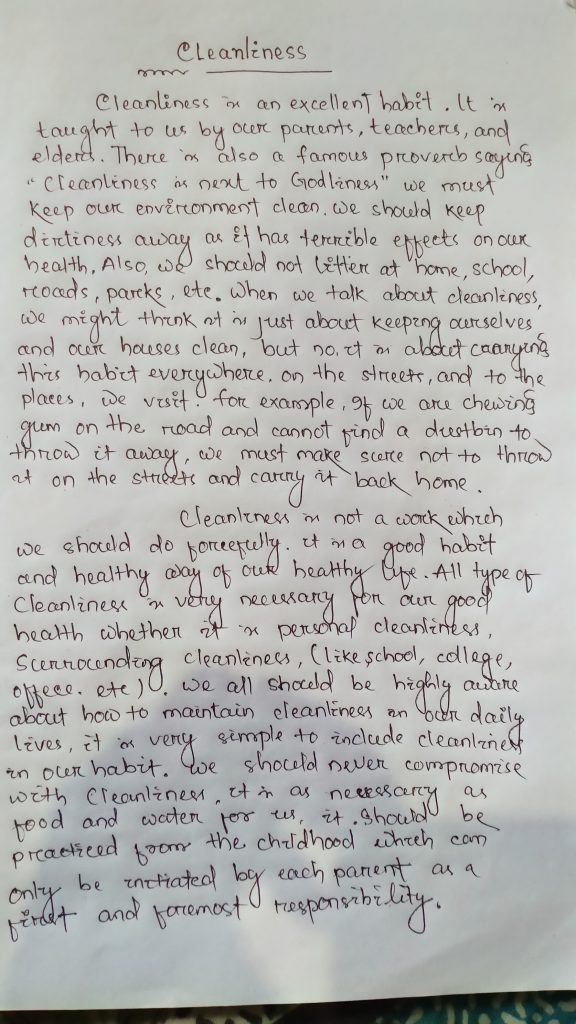 Cleanliness
Cleanliness is an excellent habit. It is
taught to us by our parents, teachers, and
elders. There is also a famous proverb saying
"Cleanliness is next to Godliness" we must
keep our environment clean. we should keep
dirtiness away as it has terrible effects on our
health. Also, we should not litter at home, school,
roads, parks, etc. When we talk about cleanliness,
we might think it is just about keeping ourselves
and our houses clean, but no, it is about carrying
this habit everywhere, on the streets, and to the
places, we visit. for example, If we are chewing
gum on the road and cannot find a dustbin to
throw it away, we must make sure not to throw
it on the streets and carry it back home.
Cleanliness is not a work which
we should do forcefully. it is a good habit
and healthy way of our healthy life. All type of
Cleanliness is very necessary for our good
health whether it is personal cleanliness,
Surrounding cleanliness, (like school, college,
office. etc). we all should be highly aware
about how to maintain cleanliness in our daily
lives, it is very simple to include cleanliness
in our habit. we should never compromise
with Cleanliness, it is as necessary as
food and water for us, it. should be
practiced from the childhood which can
only be initiated by each parent as a
first and foremost responsibility.